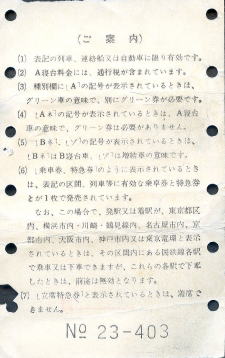 (ご案内)
(1) 表記の列車、連絡船又は自動車に限り有効です。
(2) A寝台料金には、通行税が含まれています。
(3) 種別欄に「A」の記号が表示されているときは、
グリーン車の意味で、別にグリーン券が必要です。
(4) 「Aネ」の記号が表示されているときは、A寝台
車の意味で、グリーン券は必要がありません。
(5) 「Bネ」「ゾ」の記号が表示されているときは、
「Bネ」はB寝台車、「ゾ」は増結車の意味です。
(6) 「乗車券、特急券」のように表示されているとき
は、表記の区間、列車等に有効な乗車券と特急券
とが1枚で発売されています。
なお、この場合で、発駅又は着駅が、東京都区
内、横浜市内・川崎・鶴見線内、名古屋市内、京
都市内、大阪市内、神戸市内又は東京電環と表示
されているときは、その区間内にある国鉄線各駅
で乗車又は下車できますが、これらの各駅で下車
したときは、前途は無効となります。
(7) 「立席特急券」と表示されているときは、着席で
きません。
№ 23-403